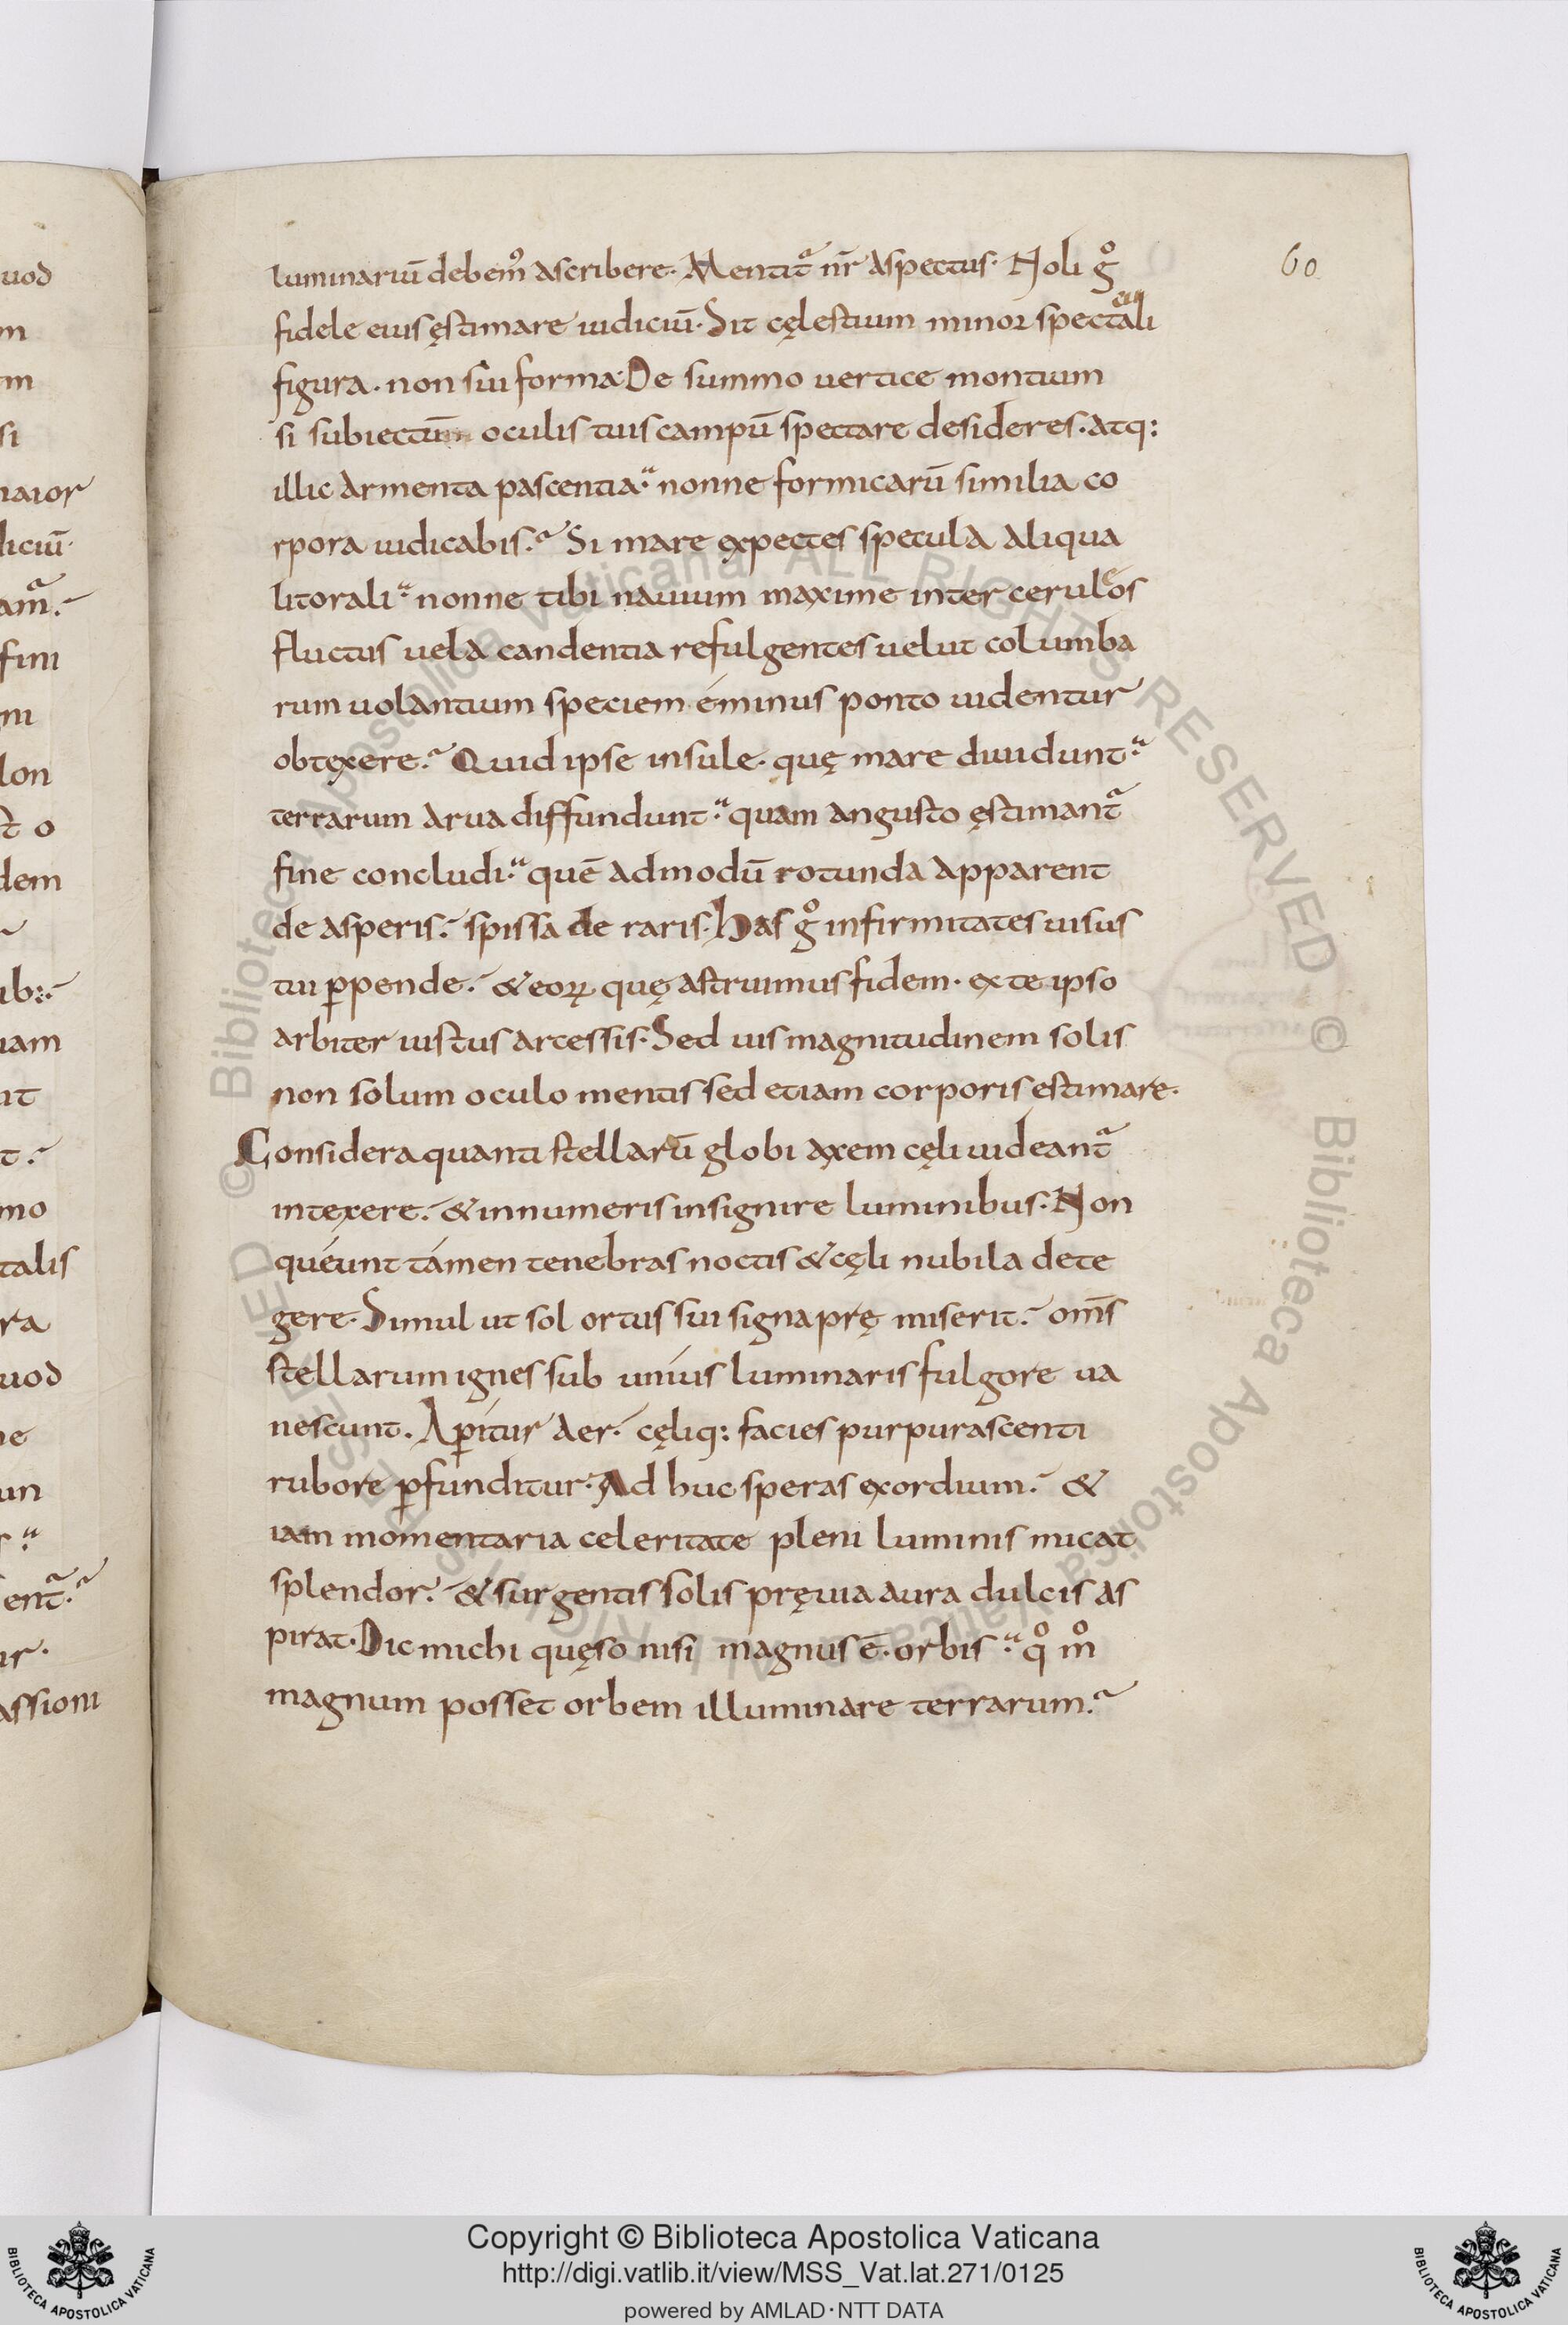 60
luminariū debem᷒ ascribere. Mentit᷑ nr̄ aspectus. Noli gͦ
fidele eius ęstimare iudiciū. Sit cęlestium minor spectali
cun
figura. non sui forma. De summo uertice montium
si subiectum oculis tuis campū spectare desideres. atq:
illic armenta pascentia. nonne formicarū similia co
rpora iudicabis.? Si mare expectes specula aliqua
litorali. nonne tibi nauium maxime inter ceruleos
fluctus uela candentia refulgentes uelut columba
rum uolantium speciem éminus ponto uidentur
obtexere.? Quid ipse insule. quę mare diuidunt.
terrarum arua diffundunt. quam angusto ęstimant᷑
fine concludi. quē admodū rotunda apparent
de asperis. spissa de raris. Has gͦ infirmitates uisus
tui ꝑpende. & eoꝝ quę astruimus fidem. ex te ipso
arbiter iustus arcessis. Sed uis magnitudinem solis
non solum oculo mentis sed etiam corporis estimare.
Considera quanti stellarū globi axem cęli uideant᷑
intexere. & innumeris insignire luminibus. Non
quéunt támen tenebras noctis & cęli nubila dete
gere. Simul ut sol ortus sui signa pręmiserit. om̄s
stellarum ignes sub uníus luminaris fulgore ua
nescunt. Aꝑítur aer. cęliq: facies purpurascenti
rubore ꝑfunditur. Ad huc speras exordium. &
iam momentaria celeritate pleni luminis micat
splendor. & surgentis solis pręuia aura dulcis as
pirat. Dic michi quęso nisi magnus ē. orbis. qͦ mͦ
magnum posset orbem illuminare terrarum.?
uod
m
im
si
naior
diciū.
am᷑.
fini
ni
lon
st o
dem
ib:.
iam
it
t.
mo
talis
ra
uod
ne
un
ent᷑.
ir.
assioni
© Biblioteca Apostolica Vaticana ALL RIGHTS RESERVED © Biblioteca Apostolica Vaticana ALL RIGHTS RESERVED
Copyright © Biblioteca Apostolica Vaticana
http://digi.vatlib.it/view/MSS_Vat.lat.271/0125
powered by AMLAD·NTT DATA
BIBLIOTECA APOSTOLICA VATICANA
BIBLIOTECA APOSTOLICA VATICANA